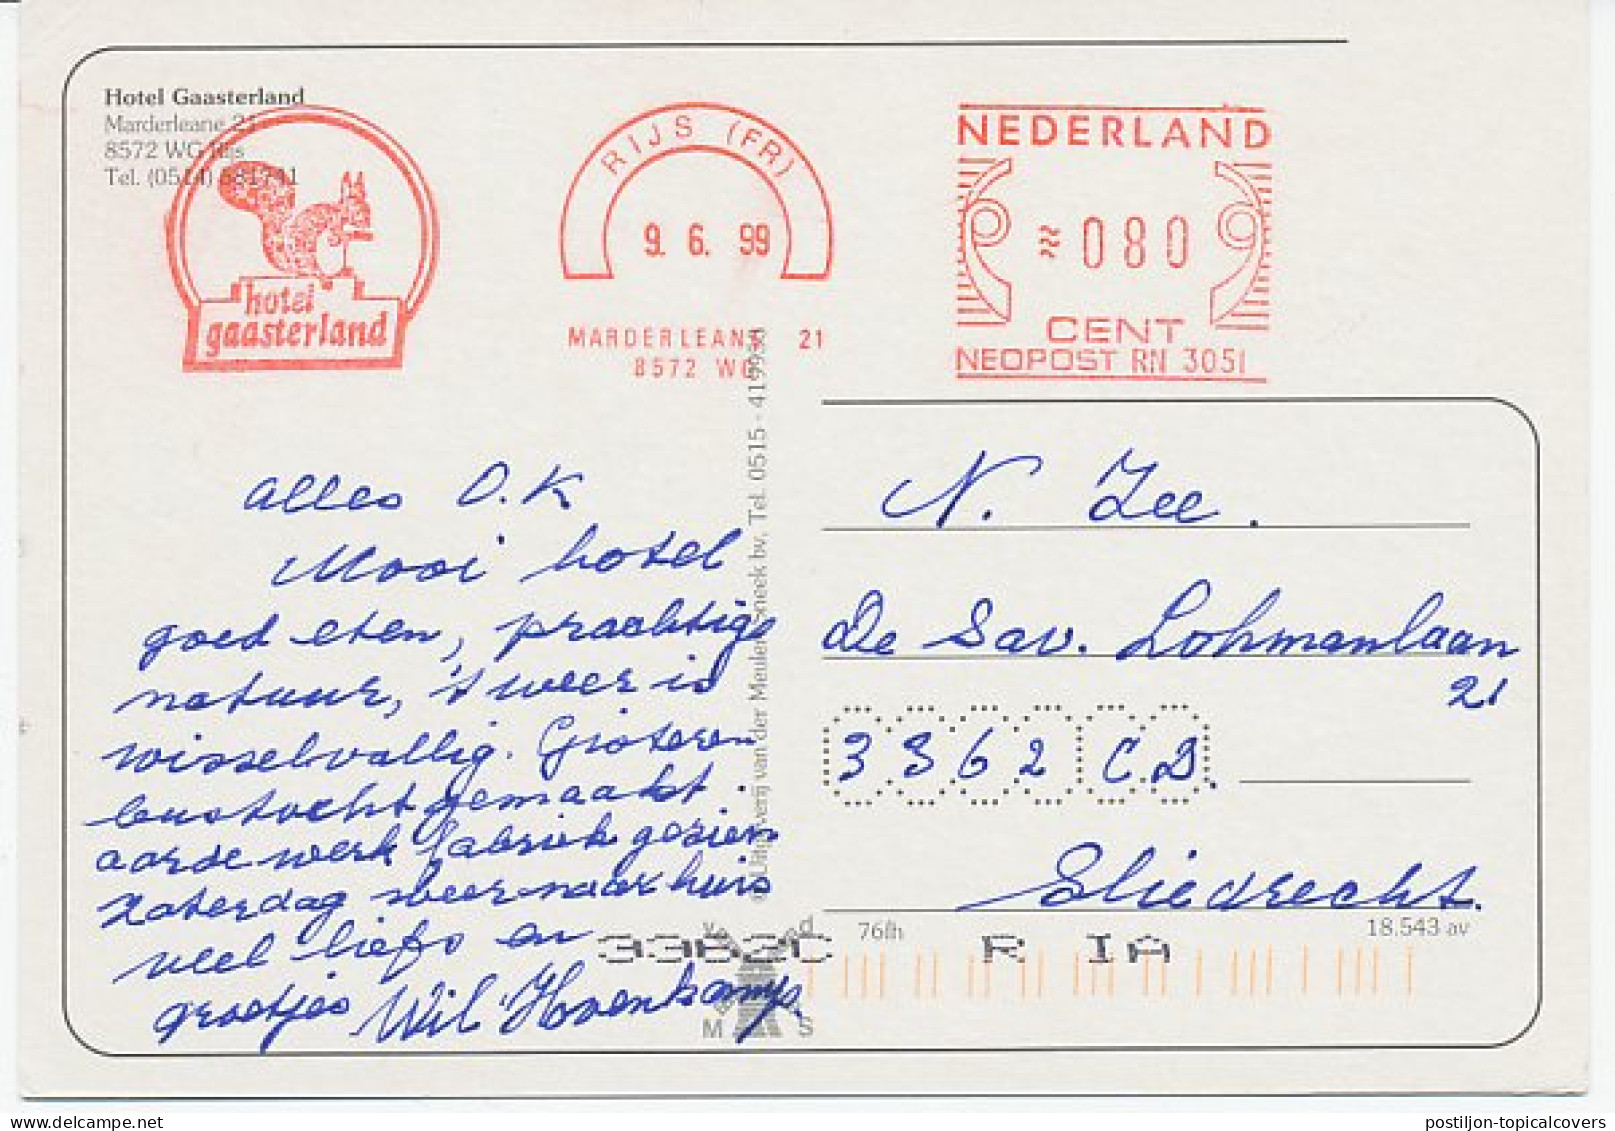 Hotel Gaasterland
Marderleane 21
8572 WG Rijs
Tel. (0514) 581741
hotel
gaasterland
RIJS (FR)
9. 6. 99
MARDERLEANE 21
8572 WG
NEDERLAND
≈080
CENT
NEOPOST RN 3051
alles O.K
Mooi hotel
goed eten, prachtige
natuur, 't weer is
wisselvallig. Gisteren
aardewerk fabriek gezien
Zaterdag weer naar huis
veel liefs en
groetjes Wil Hoenkamp
Uitgeverij van der Meulen Sneek bv, Tel. 0515 - 419935
N. Zee.
De Sav. Lohmanlaan
21
3362 CD.
Sliedrecht.
76fh
18.543 av
3362C R IA
M S
postiljon-topicalcovers